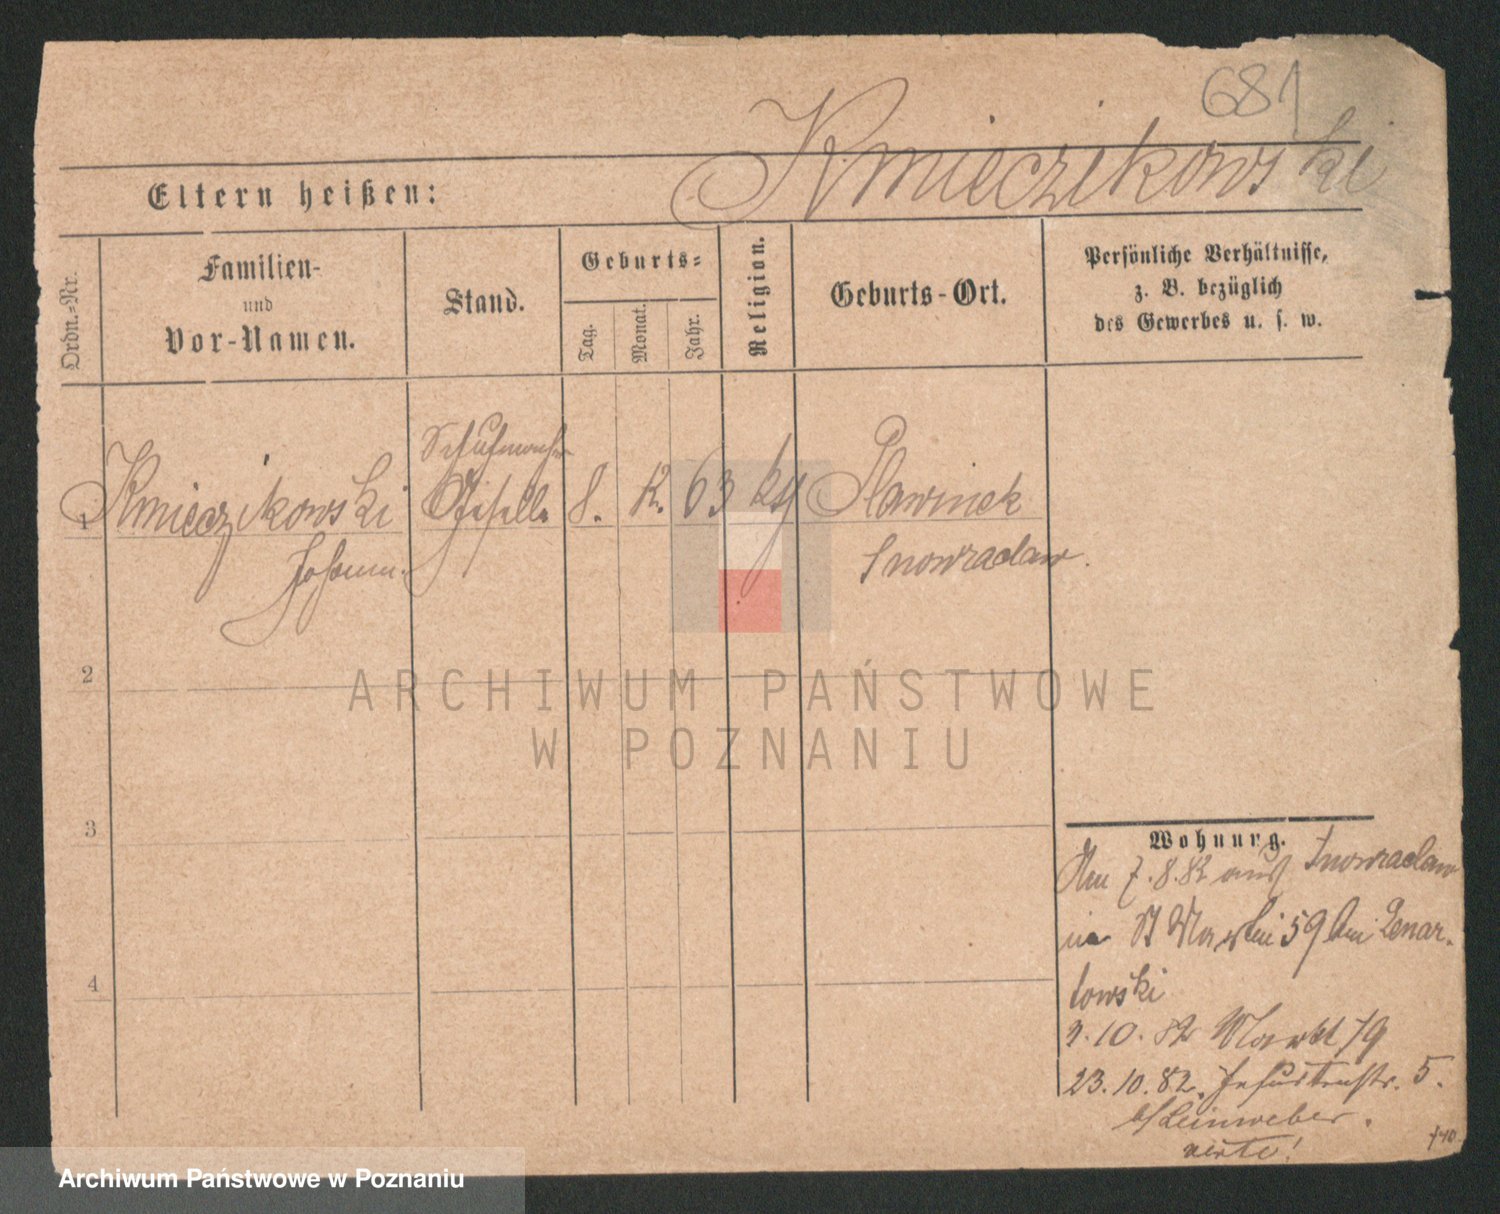 681
Kmieczikowski
Eltern heißen:
Ordn.-Nr.
Familien-
und
Vor-Namen.
Stand.
Geburts-
Tag.
Monat.
Jahr.
Religion.
Geburts-Ort.
Persönliche Verhältnisse,
z. B. bezüglich
des Gewerbes u. s. w.
Schuhmacher
1 Kmieczikowski Gesell. 8. 12. 63 Slawinek
Johann. Inowraclaw.
2
3
4
ARCHIWUM PAŃSTWOWE
W POZNANIU
Wohnung.
Am 7.8.82 aus Inowraclaw
in St Martin 59 bei Lenar-
towski
2.10.82 Markt 79
23.10.82. 5.
b/Leinweber.
verte!
Archiwum Państwowe w Poznaniu